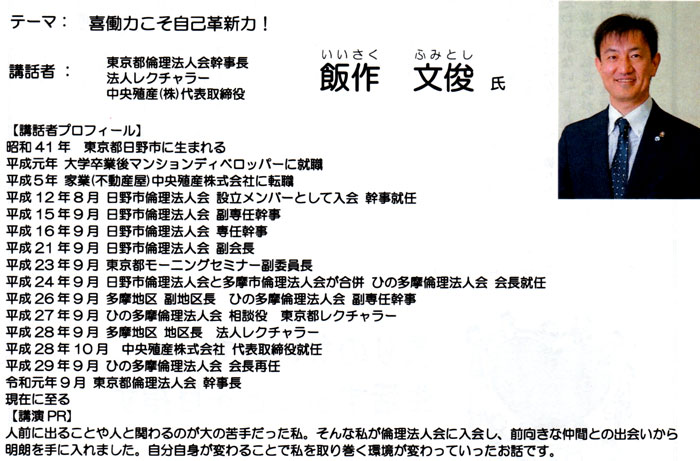 テーマ： 喜働力こそ自己革新力！
講話者： 東京都倫理法人会幹事長
法人レクチャラー
中央殖産(株)代表取締役
いいさく ふみとし
飯作 文俊 氏
【講話者プロフィール】
昭和４１年 東京都日野市に生まれる
平成元年 大学卒業後マンションディベロッパーに就職
平成５年 家業(不動産屋)中央殖産株式会社に転職
平成１２年８月 日野市倫理法人会 設立メンバーとして入会 幹事就任
平成１５年９月 日野市倫理法人会 副専任幹事
平成１６年９月 日野市倫理法人会 専任幹事
平成２１年９月 日野市倫理法人会 副会長
平成２３年９月 東京都モーニングセミナー副委員長
平成２４年９月 日野市倫理法人会と多摩市倫理法人会が合併 ひの多摩倫理法人会 会長就任
平成２６年９月 多摩地区 副地区長 ひの多摩倫理法人会 副専任幹事
平成２７年９月 ひの多摩倫理法人会 相談役 東京都レクチャラー
平成２８年９月 多摩地区 地区長 法人レクチャラー
平成２８年１０月 中央殖産株式会社 代表取締役就任
平成２９年９月 ひの多摩倫理法人会 会長再任
令和元年９月 東京都倫理法人会 幹事長
現在に至る
【講演ＰＲ】
人前に出ることや人と関わるのが大の苦手だった私。そんな私が倫理法人会に入会し、前向きな仲間との出会いから
明朗を手に入れました。自分自身が変わることで私を取り巻く環境が変わっていったお話です。